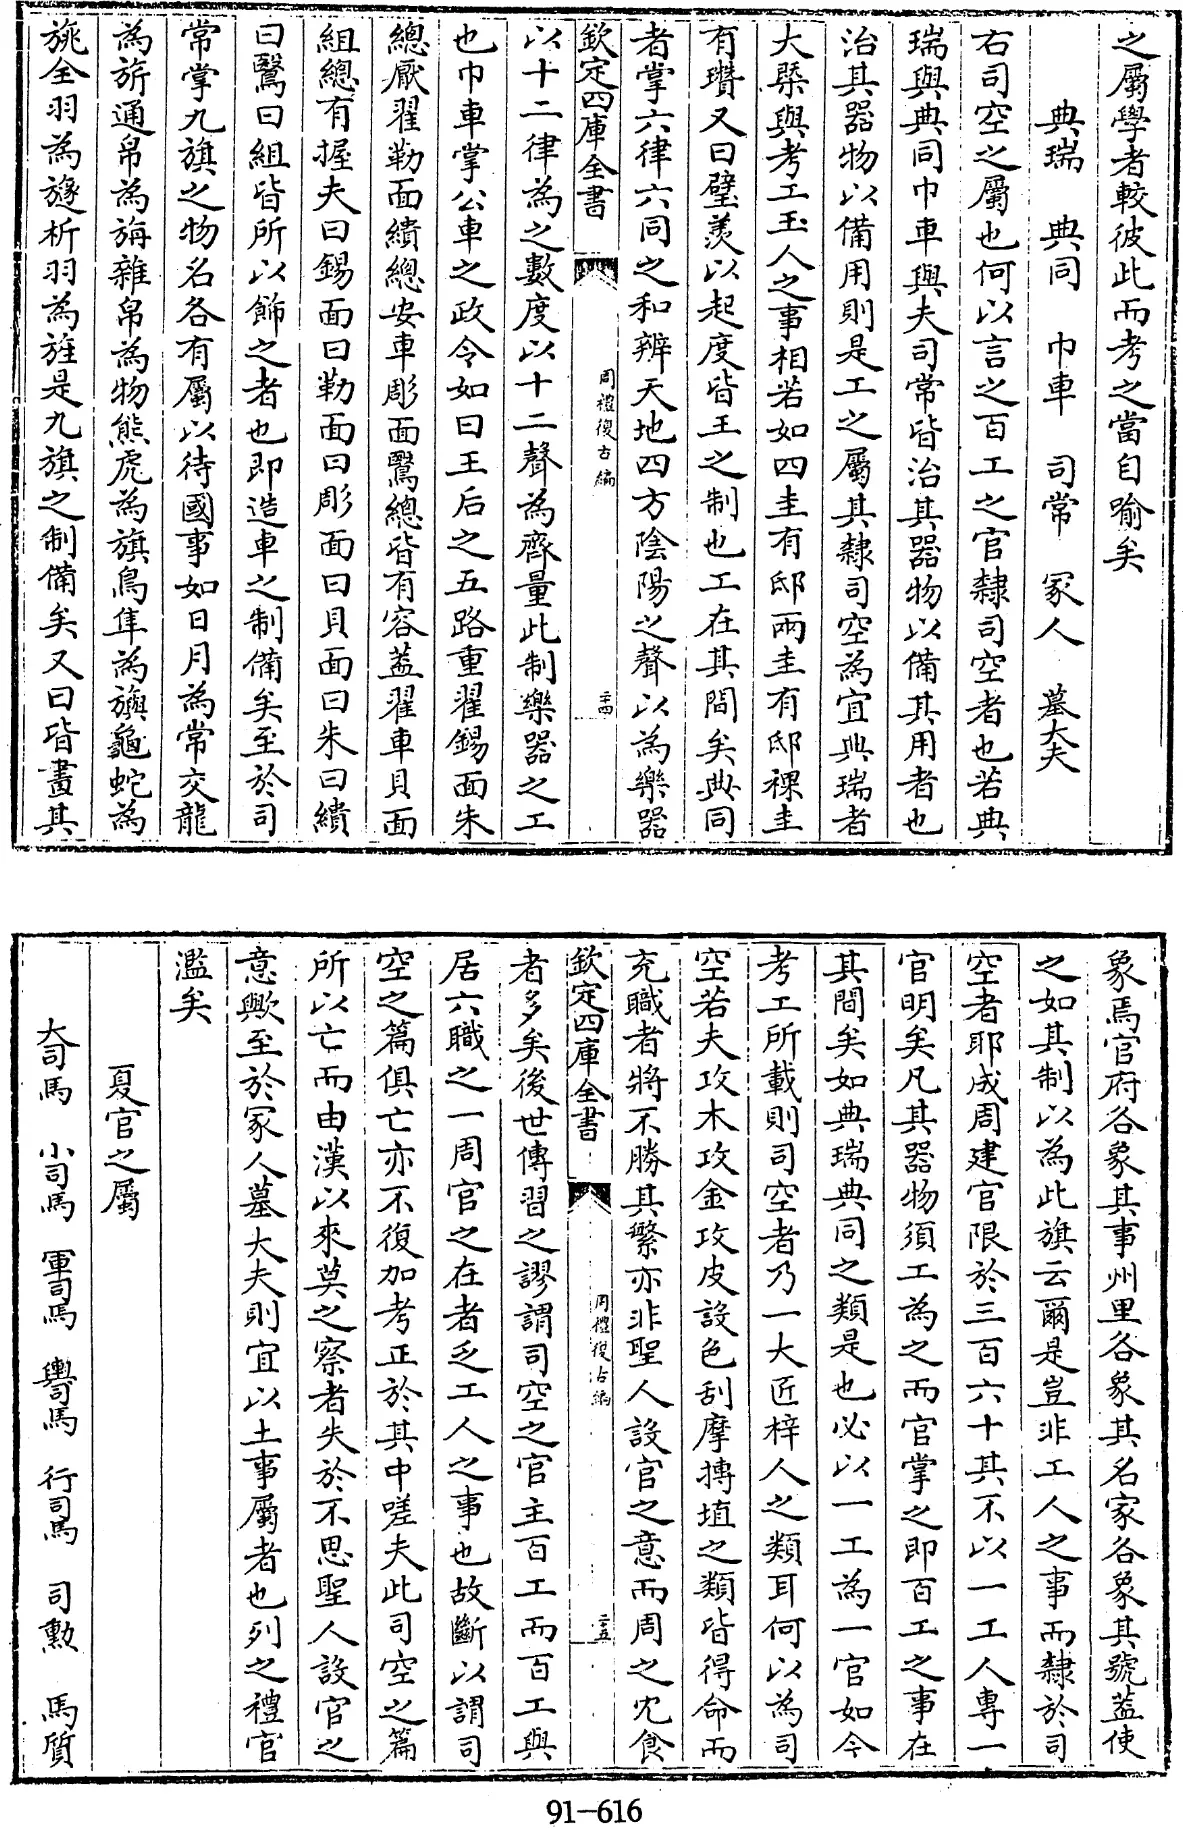 之屬學者較彼此而考之當自喻矣
典瑞　典同　巾車　司常　冢人　墓大夫
右司空之屬也何以言之百工之官隸司空者也若典
瑞與典同巾車與夫司常皆治其器物以備其用者也
治其器物以備用則是工之屬其隸司空為宜典瑞者
大槩與考工玉人之事相若如四圭有邸兩圭有邸祼圭
有瓚又曰璧羨以起度皆王之制也工在其間矣典同
者掌六律六同之和辨天地四方陰陽之聲以為樂器
欽定四庫全書
周禮復古編
二十四
以十二律為之數度以十二聲為齊量此制樂器之工
也巾車掌公車之政令如曰王后之五路重翟錫面朱
總厭翟勒面繢總安車彫面鷖總皆有容葢翟車貝面
組總有握夫曰錫面曰勒面曰彫面曰貝面曰朱曰繢
曰鷖曰組皆所以飾之者也即造車之制備矣至於司
常掌九旗之物名各有屬以待國事如日月為常交龍
為旂通帛為旃雜帛為物熊虎為旗鳥隼為旟龜蛇為
旐全羽為旞析羽為旌是九旗之制備矣又曰皆畫其
象焉官府各象其事州里各象其名家各象其號葢使
之如其制以為此旗云爾是豈非工人之事而隸於司
空者耶成周建官限於三百六十其不以一工人專一
官明矣凡其器物須工為之而官掌之即百工之事在
其間矣如典瑞典同之類是也必以一工為一官如今
考工所載則司空者乃一大匠梓人之類耳何以為司
空若夫攻木攻金攻皮設色刮摩摶埴之類皆得命而
充職者將不勝其繁亦非聖人設官之意而周之冗食
欽定四庫全書
周禮復古編
二十五
者多矣後世傳習之謬謂司空之官主百工而百工與
居六職之一周官之在者乏工人之事也故斷以謂司
空之篇俱亡亦不復加考正於其中嗟夫此司空之篇
所以亡而由漢以來莫之察者失於不思聖人設官之
意歟至於冢人墓大夫則宜以土事屬者也列之禮官
濫矣
夏官之屬
大司馬　小司馬　軍司馬　輿司馬　行司馬　司勲　馬質
91-616